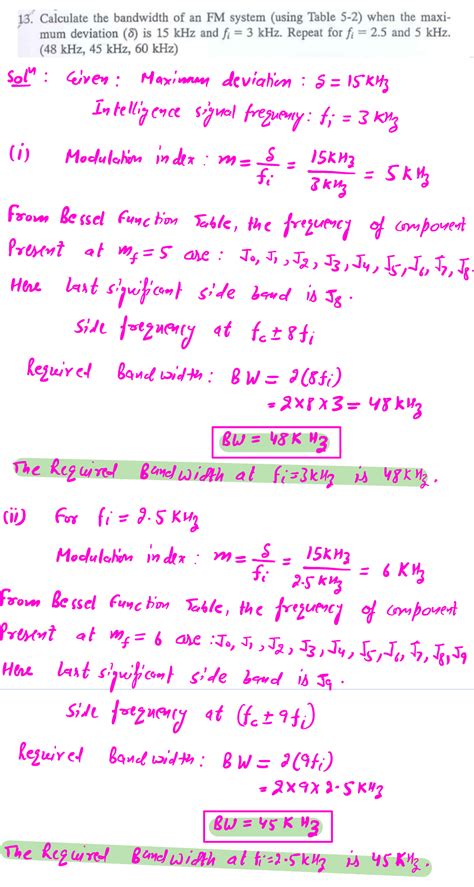 13. Calculate the bandwidth of an FM system (using Table 5-2) when the maxi-
mum deviation (δ) is 15 kHz and fi = 3 kHz. Repeat for fi = 2.5 and 5 kHz.
(48 kHz, 45 kHz, 60 kHz)
Solⁿ : Given : Maximum deviation : δ = 15 KHz
Intelligence signal frequency : fi = 3 KHz
(i) Modulation index : m = δ/fi = 15KHz/3KHz = 5 KHz
From Bessel Function Table, the frequency of component
Present at mf = 5 are : J0, J1, J2, J3, J4, J5, J6, J7, J8.
Here last significant side band is J8.
Side frequency at fc ± 8fi
Required Bandwidth : BW = 2(8fi)
= 2×8×3 = 48 KHz
BW = 48K Hz
The Required Bandwidth at fi=3KHz is 48KHz.
(ii) For fi = 2.5 KHz
Modulation index : m = δ/fi = 15KHz/2.5 KHz = 6 KHz
From Bessel Function Table, the frequency of component
Present at mf = 6 are : J0, J1, J2, J3, J4, J5, J6, J7, J8, J9
Here last significant side band is J9.
Side frequency at (fc ± 9fi)
Required Bandwidth : BW = 2(9fi)
= 2×9×2.5KHz
BW = 45 K Hz
The Required Bandwidth at fi=2.5KHz is 45KHz.